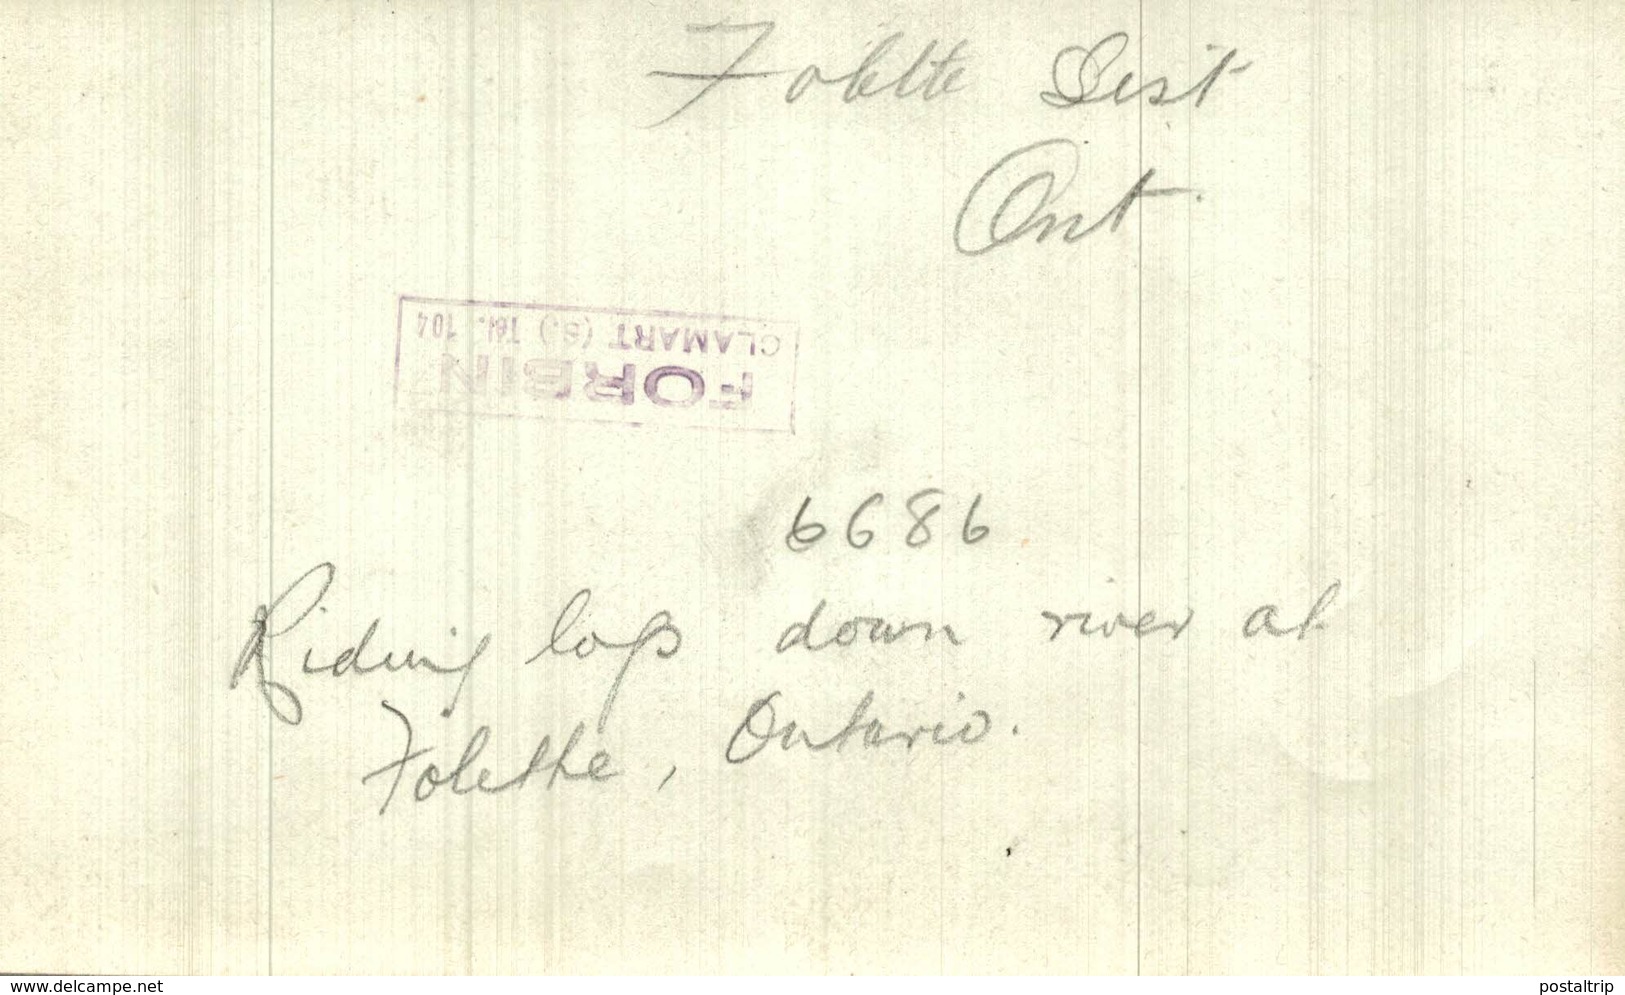 Folette Dist
Ont.
FORBIN
CLAMART (S.) Tél. 104
6686
Riding logs down river at
Folette, Ontario.
www.delcampe.net
postaltrip